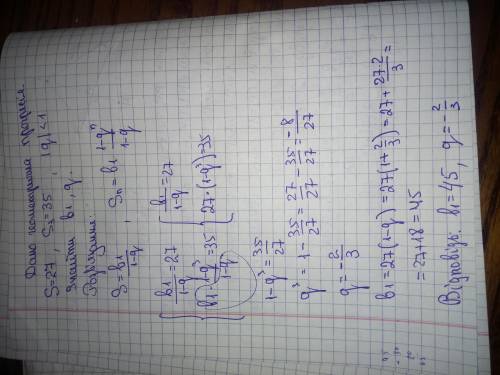 Дано геометрична прогресія
S=27, S₃=35, |q|<1
Знайти b₁, q.
Розв'язання:
S = b₁/(1-q), Sₙ = b₁ (1-qⁿ)/(1-q)
{ b₁/(1-q) = 27 { b₁/(1-q) = 27
{ b₁ (1-q³)/(1-q) = 35 { 27·(1-q³) = 35
1-q³ = 35/27
q³ = 1 - 35/27 = 27/27 - 35/27 = -8/27
q = -2/3
b₁ = 27(1-q) = 27(1+2/3) = 27 + 27·2/3 =
= 27+18 = 45
Відповідь: b₁=45, q = -2/3